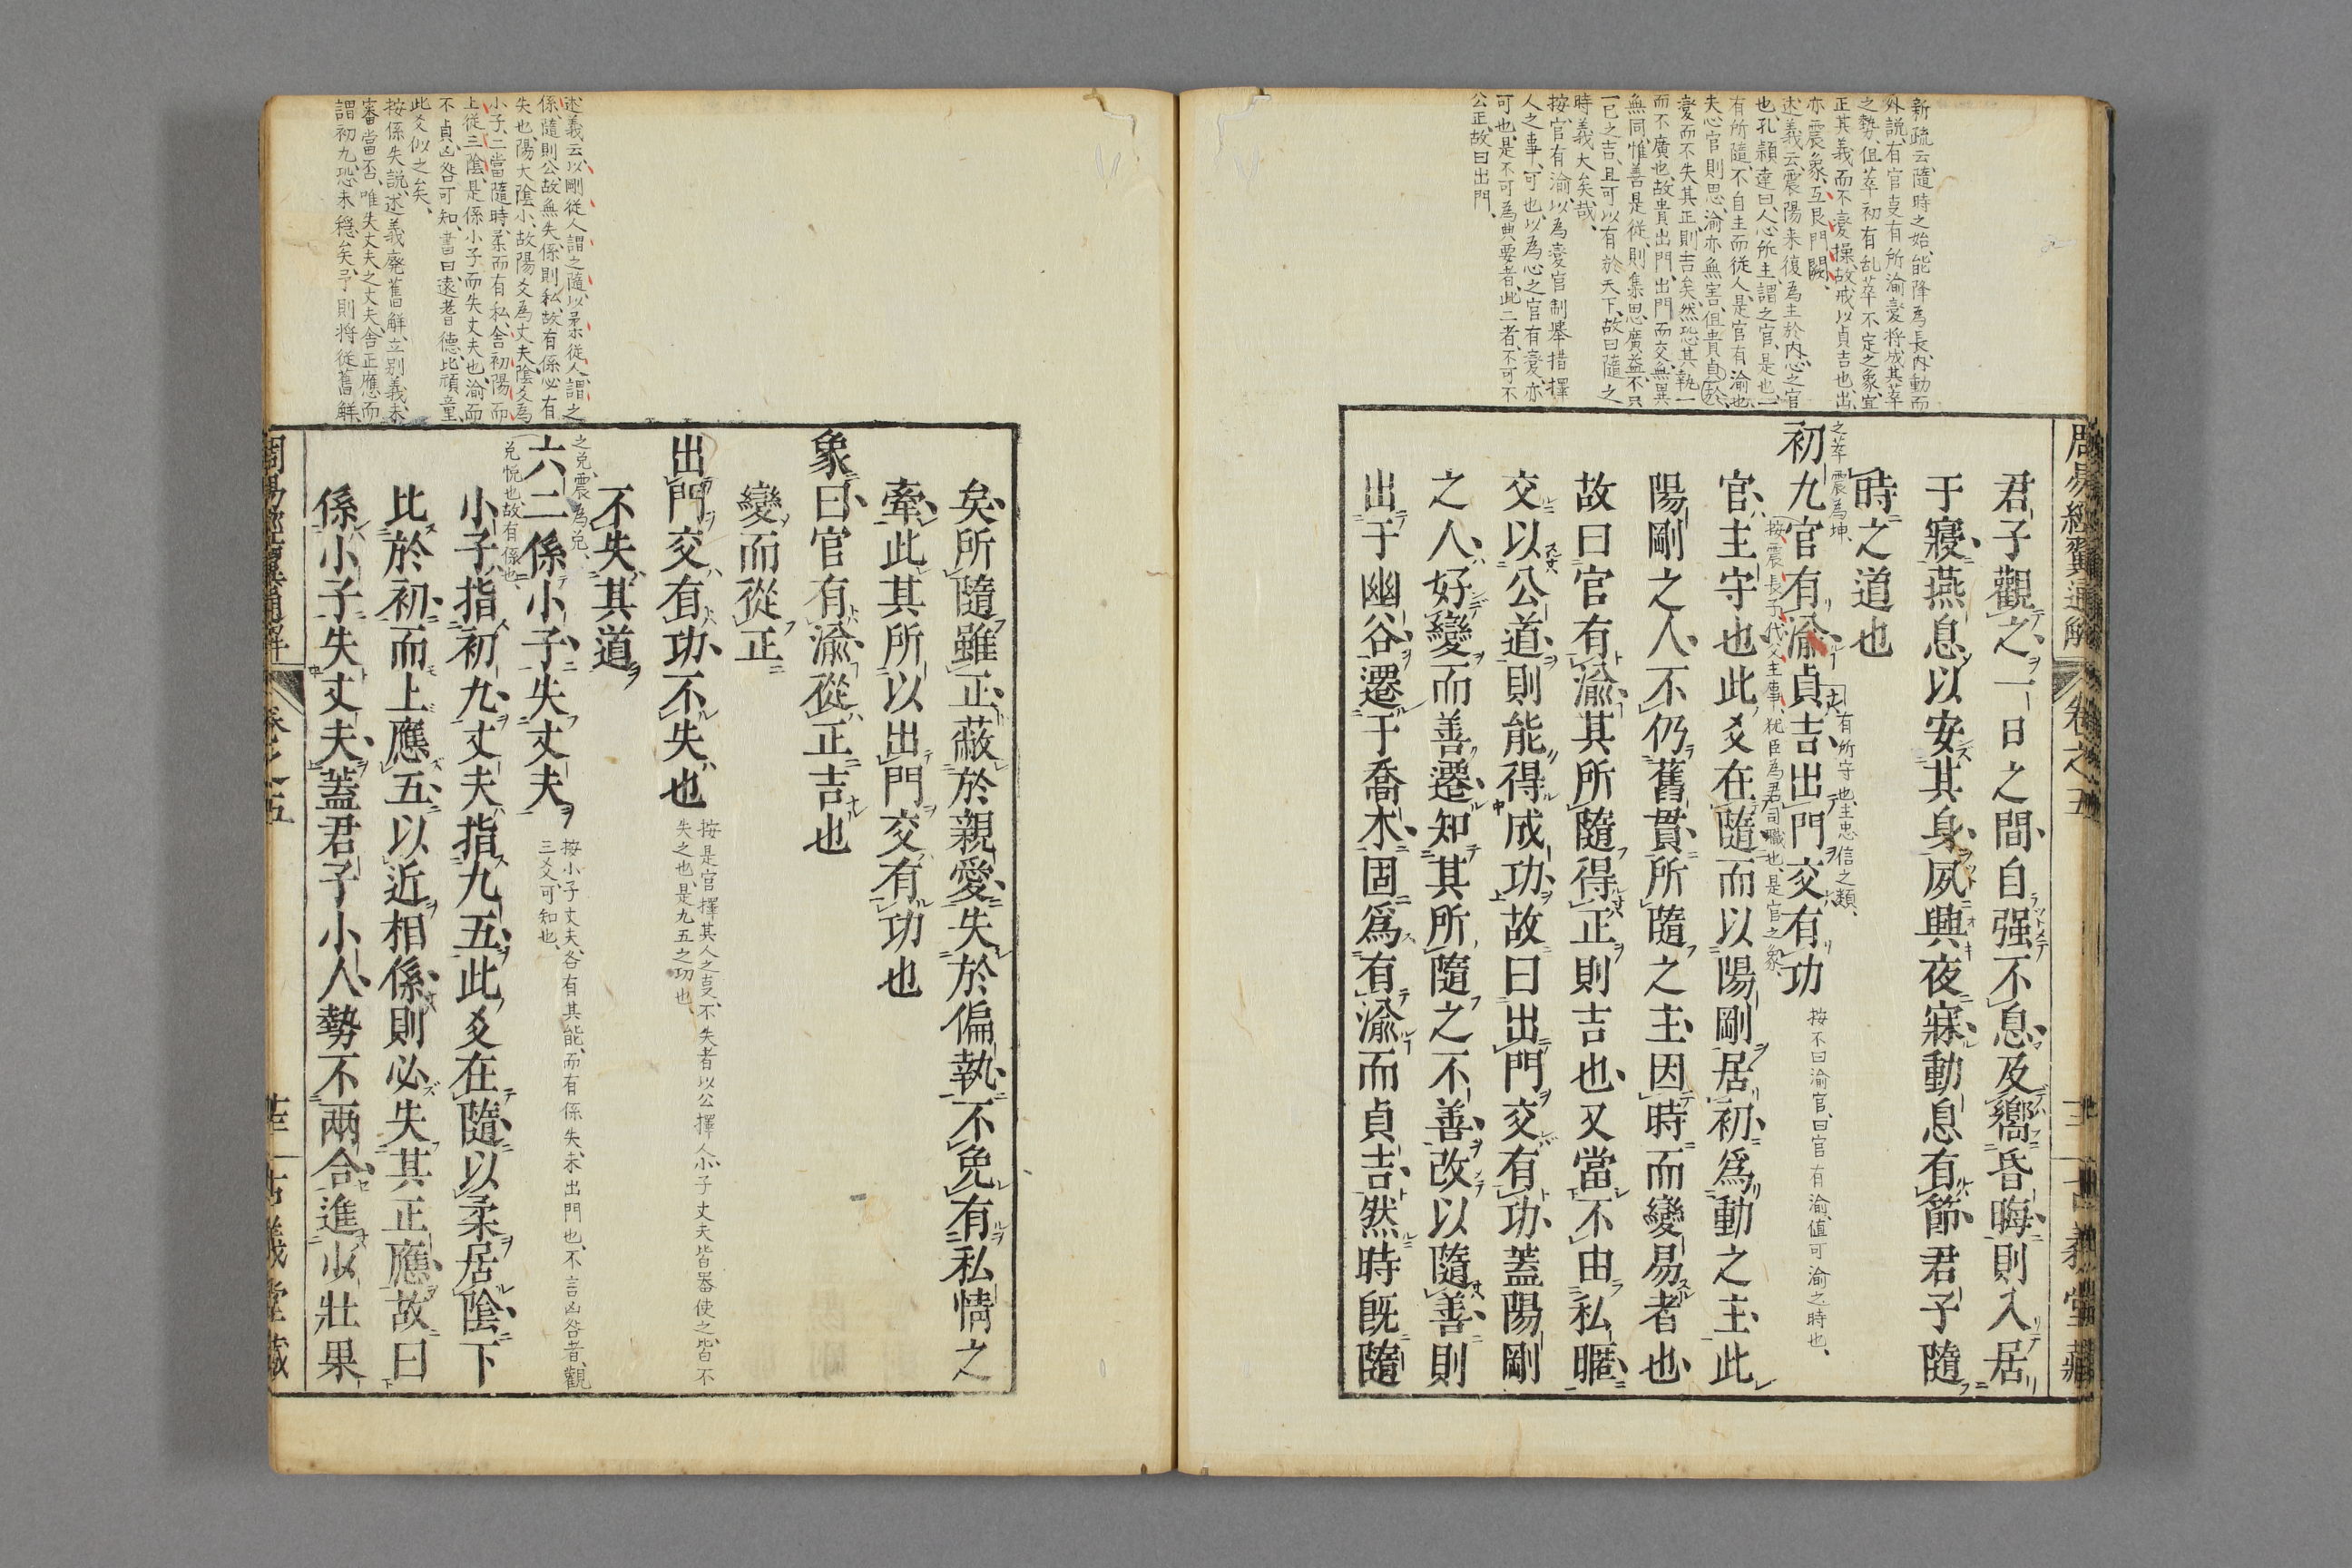 新疏云、隨時之始、能降為長、内動而
外説、有官叓有所渝變、将成其萃
之勢、但萃初有乱萃不定之象、宜
正其義而不變操、故戒以貞吉也、出
亦震象、互艮門闕、
述義云、震陽来復、為主於内、心之官
也、孔穎達曰、人心所主、謂之官、是也、
有所隨、不自主而從人、是官有渝也
夫心官則思、渝亦無害、但貴貞
變而不失其正則吉矣、然恐其執一
而不廣也、故貴出門、出門而交、無異
無同、惟善是従、則集思廣益、不只
一已之吉、且可以有於天下、故曰隨之
時義大矣哉、
按、官有渝、以為變官制舉措擇
人之事、可也、以為心之官有變、亦
可也、是不可為典要者、此二者、不可不
公正、故曰出門、
周易經翼通解 卷之五 古義堂藏
君子觀之一日之間自强不息及嚮昏晦則入居
于寢燕息以安其身夙興夜寐動息有節君子隨
時之道也
之萃 震為坤、
初九官有渝貞吉出門交有功
有所守也、主忠信之類、
按不曰渝官、曰官有渝、値可渝之時也、
按震長子代父主事、犹臣為君司職也、是官之象、
官主守也此爻在隨而以陽剛居初爲動之主此
陽剛之人不仍舊貫所隨之主因時而變易者也
故曰官有渝其所隨得正則吉也又當不由私暱
交以公道則能得成功故曰出門交有功蓋陽剛
之人好變而善遷知其所隨之不善改以隨善則
出于幽谷遷于喬木固爲有渝而貞吉然時旣隨
述義云、以剛従人謂之隨、以柔従人、謂之
係、隨則公、故無失、係則私、故有係必有
失也、陽大陰小、故陽爻為丈夫、陰爻為
小子、二當隨時、柔而有私、舎初陽而
上従三陰、是係小子而失丈夫也、渝而
不貞、凶咎可知、書曰、遠耆德、比頑童、
此爻似之矣、
按係失説、述義廃舊解、立别義、未
審當否、唯失丈夫之丈夫、舎正應而
謂初九、恐未穏矣、予則将従舊解、
矣所隨雖正蔽於親愛失於偏執不免有私情之
牽此其所以出門交有功也
象曰官有渝從正吉也
變而從正
出門交有功不失也
按是官擇其人之叓、不失者以公擇人、小子丈夫皆器使之、皆不
失之也、是九五之功也、
不失其道
之兑、震為兑、
六二係小子失丈夫
按小子丈夫、各有其能、而有係失、未出門也、不言凶咎者、觀
三爻可知也、
兑悦也、故有係也、
小子指初九丈夫指九五此爻在隨以柔居陰下
比於初而上應五以近相係則必失其正應故曰
係小子失丈夫蓋君子小人勢不兩合進必壯果
周易經翼通解 卷之五 古義堂藏